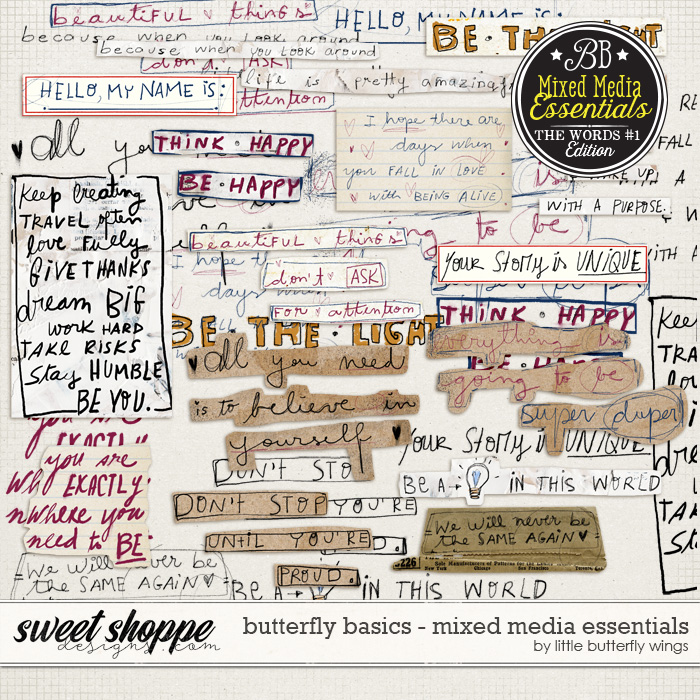 beautiful things
HELLO, MY NAME is:
because when you look around
because when you look around
BE · THE LIGHT
don't ASK
life is pretty amazing
HELLO, MY NAME is:
attention
BB
Mixed Media
Essentials
THE WORDS #1
Edition
All you
THINK · HAPPY
BE · HAPPY
I hope there are
days when
you FALL in LOVE
with BEING ALIVE
FALL
WAKE UP
WITH A PURPOSE.
Keep Creating
TRAVEL often
love Fully
GIVE THANKS
dream BIG
WORK HARD
TAKE RISKS
Stay HUMBLE
BE YOU.
to be
beautiful things
I hope the
don't ASK
days
FOR attention
YOUR STORY is UNIQUE
BE · THE · LIGHT
THINK · HAPPY
All you need
is to believe in
yourself
everything is
BE HAPPY
going to be
super duper
Kee
TRAV
love
you are
EXACTLY
you are
EXACTLY
Where you
need to BE
DON'T STO
DON'T STOP YOU'RE
UNtil YOU'RE
PROUD.
YOUR STORY is UNIQUE
BE A IN THIS WORLD
We will never be
the SAME AGAIN
We will never be
the SAME AGAIN
226
Sole Manufacturers of Patterns for the
New York Chicago San Francisco
BE A IN THIS WORLD
sweet shoppe
designs.com
butterfly basics - mixed media essentials
by little butterfly wings